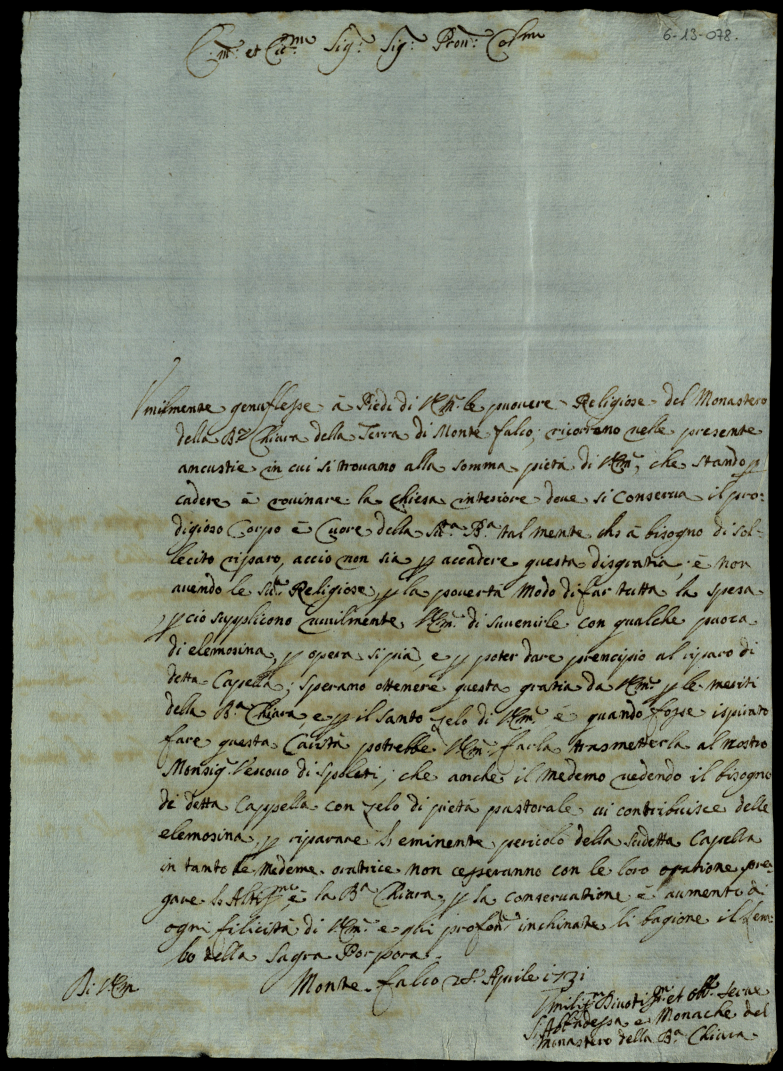 6-13-078.
E.mo et R.mo Sig.r Sig.r Pron. Col.mo
Umilmente genuflesse à Piedi di V. Em. le povere Religiose del Monastero
della B.a Chiara della Terra di Monte falco, ricorrono nelle presente
ancustie in cui si trovano alla somma pietà di V. Em., che stando p
cadere è rovinare la chiesa interiore dove si conserva il pro=
digioso Corpo è Cuore della B.a talmente che à bisogno di sol=
lecito riparo, acciò non sia p accadere questa disgratia, è non
avendo le Religiose, p la povertà Modo di far tutta la spesa
p ciò supplicono umilmente V. Em. di suvenirle con qualche puoca
di elemosina, p opera si pia, e p poter dare prencipio al riparo di
detta Capella; sperano ottenere questa gratia da V. Em. p le meriti
della B.a Chiara, e p il santo zelo di V. Em. è quando fosse ispirato
fare questa Carità potrebbe V. Em. farla trasmetterla al nostro
Monsig. Vescovo di Spoleti, che anche il medemo vedendo il bisogno
di detta Cappella con zelo di pietà pastorale vi contribuisce delle
elemosina, p riparare l'eminente pericolo della sudetta Capella
in tanto le Medeme oratrice non cesseranno con le loro oratione pre=
gare l'Altiss.mo è la B.a Chiara, p la conservatione è aumento di
ogni filicità di V. Em. e qui profon.te inchinate li bagione il Lem=
bo della Sagra Porpora.
Monte falco 28 Aprile 1731
Di V. Em.
Umilis.me Divotis.me et Obb. Serve
L'Abbadessa e Monache del
Minastero della B.a Chiara